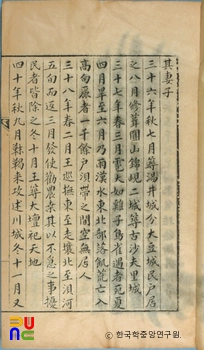 其妻子
三十六年秋七月築湯井城分大豆城民戶居
之八月修葺圓山錦峴二城築古沙夫里城
三十七年春三月雹大如雞子鳥雀遇者死夏
四月旱至六月乃雨漢水東北部落飢荒亡入
高句麗者一千餘戶浿帶之間空無居人
三十八年春二月王巡撫東至走壤北至浿河
五旬而返三月發使勸農桑其以不急之事擾
民者皆除之冬十月王築大壇祠天地
四十年秋九月靺鞨來攻述川城冬十一月又
한국학중앙연구원